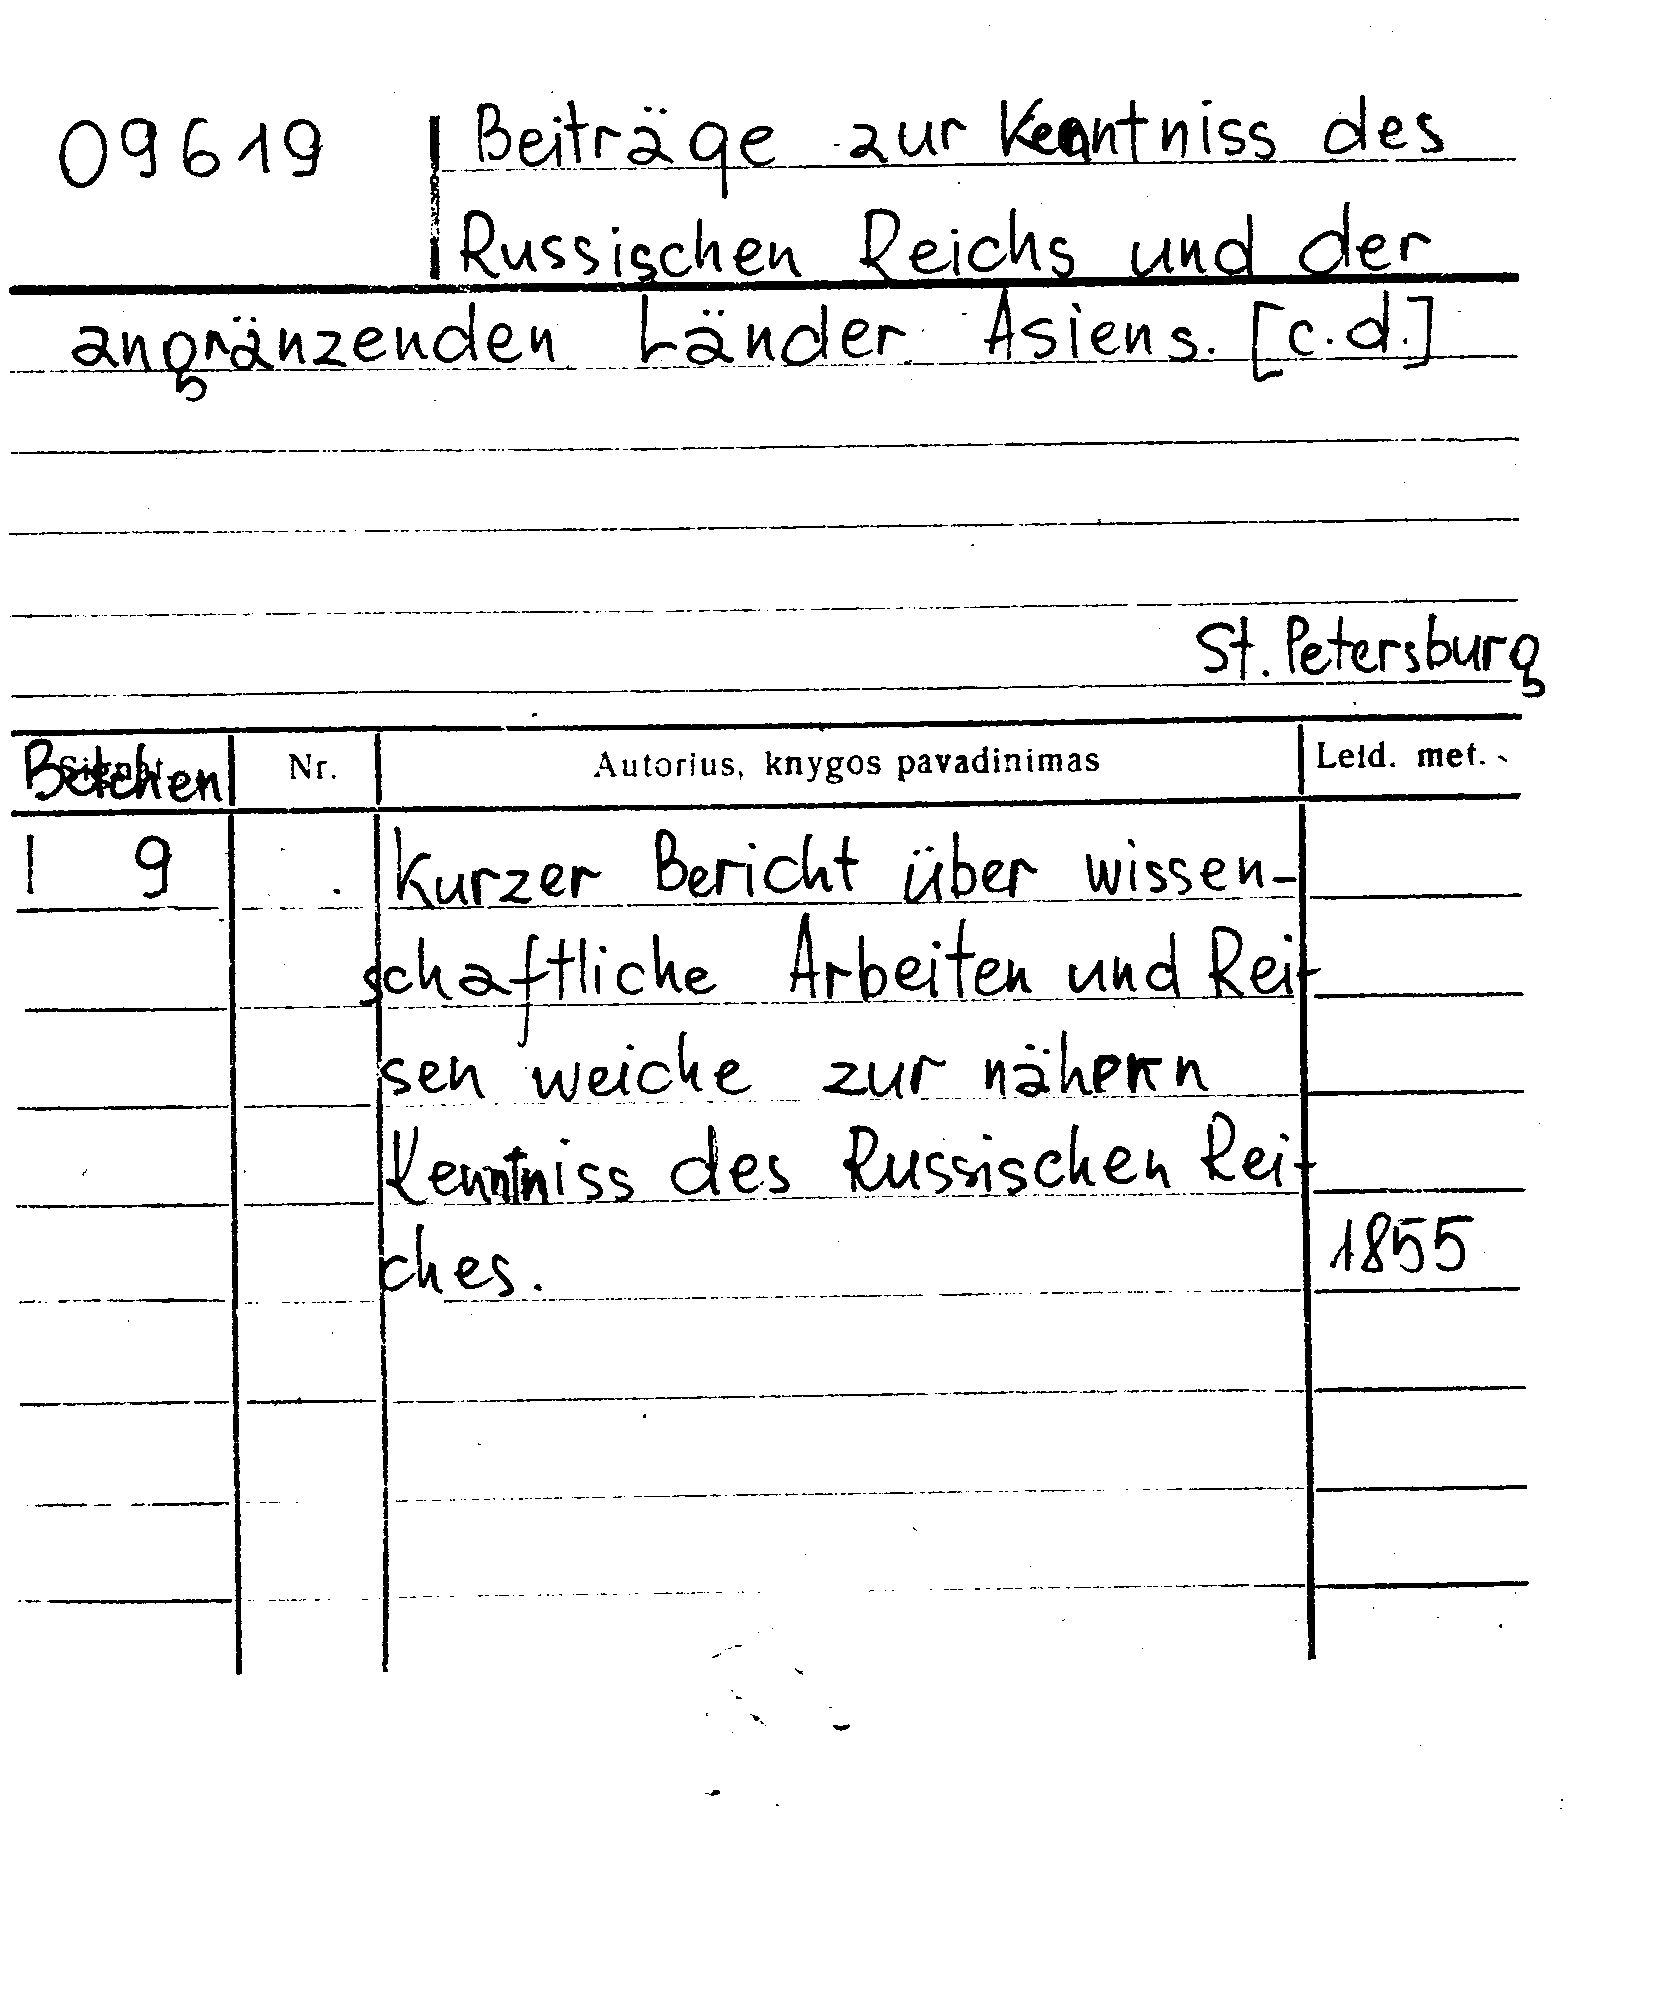 09619 Beiträge zur Kenntniss des
Russischen Reichs und der
angränzenden Länder Asiens. [c.d.]
St. Petersburg
Nr. Autorius, knygos pavadinimas Leid. met.
1 9 Kurzer Bericht über wissen-
schaftliche Arbeiten und Rei-
sen weiche zur nähern
Kenntniss des Russischen Rei-
ches. 1855